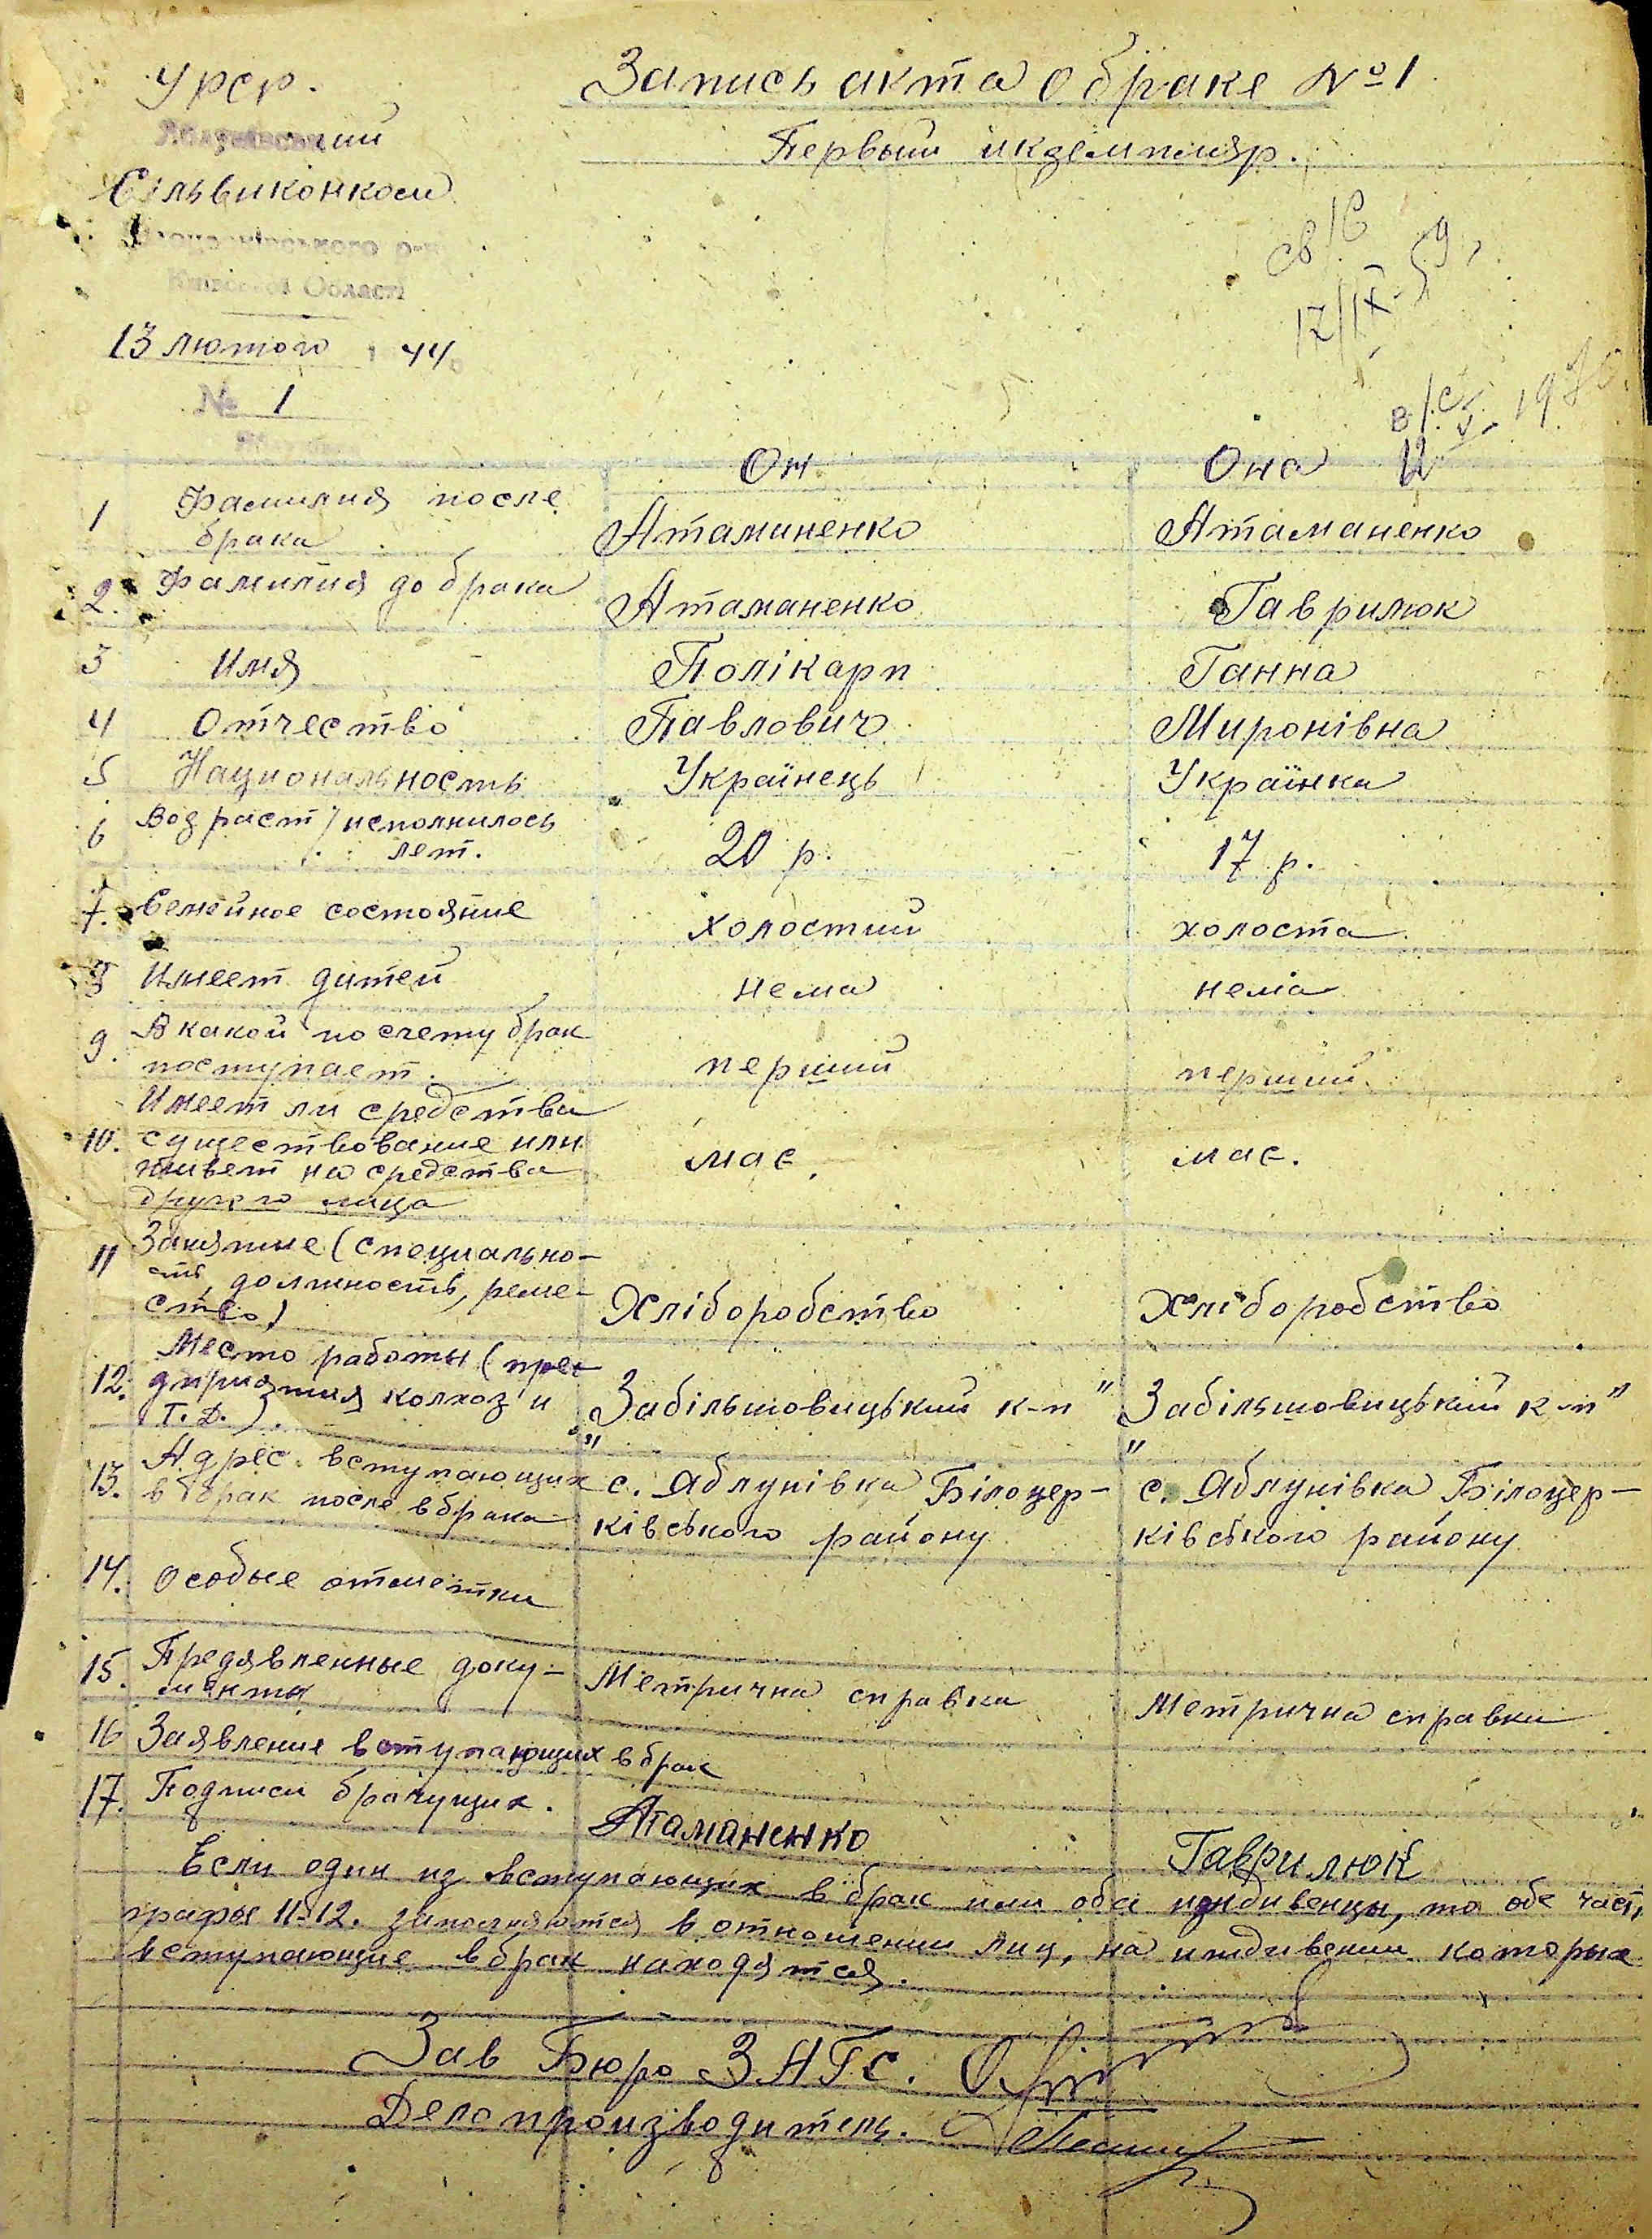 УРСР.
Запись акта о браке №1
Первый икземпляр.
Сільвиконком
Області
св/С
17/IX-59,
13 лютого 44
№ 1
в/с
Он
Она
1 Фамилия после
брака
Атаманенко
Атаманенко
2. Фамилия до брака
Атаманенко
Гаврилюк
3 Имя
Полікарп
Ганна
4 Отчество
Павлович
Миронівна
5 Национальность
Українець
Українка
6 Возраст/исполнилось
лет.
20 р.
17 р.
7. Семейное состояние
холостий
холоста
8 Имеет дитей
нема
нема
9. В какой по счету брак
поступает.
перший
перший
10. Имеет ли средства
существование или
живет на средства
другого лица
має.
має.
11 Занятие (специально-
сть, должность, реме-
ство)
Хліборобство
Хліборобство
12. Место работы (пред
дприятия колхоз и
т.д.).
„Забільшовицький к-п"
„Забільшовицький к-п"
13. Адрес вступающих
в брак после в брака
с. Яблунівка Білоцер-
ківського району
с. Яблунівка Білоцер-
ківського району
14. Особые отметки
15. Предявленные доку-
менты
Метрична справка
Метрична справка
16 Заявление вступающих в брак
17. Подписи брачущих.
Атаманенко
Гаврилюк
Если один из вступающих в брак или оба иждивенцы, то обе част,
графы 11-12. заполняются в отношении лиц, на иждивении которых
вступающие в брак находятся.
Зав Бюро ЗАГС.
Делопроизводитель.